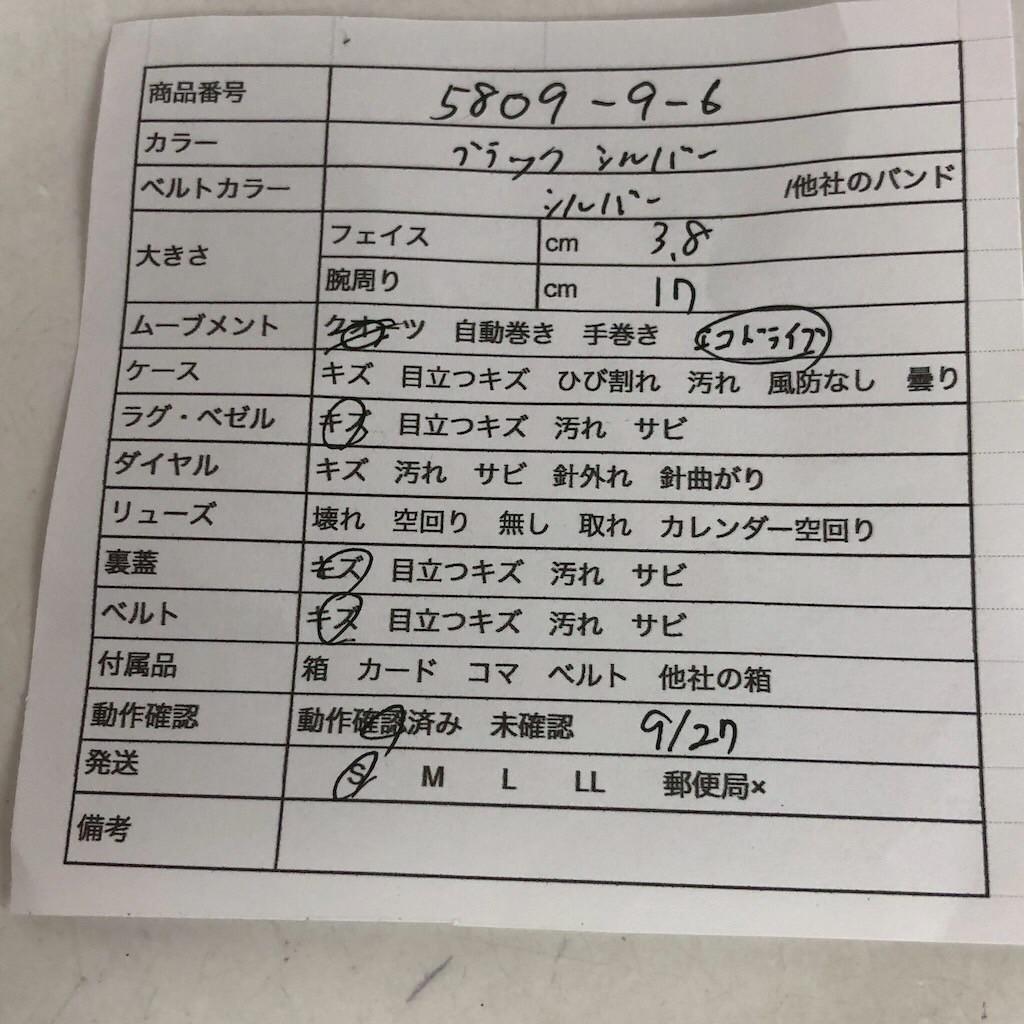 商品番号 5809-9-6
カラー ブラック シルバー
ベルトカラー シルバー /他社のバンド
大きさ フェイス cm 3.8
腕周り cm 17
ムーブメント クオーツ 自動巻き 手巻き エコドライブ
ケース キズ 目立つキズ ひび割れ 汚れ 風防なし 曇り
ラグ・ベゼル キズ 目立つキズ 汚れ サビ
ダイヤル キズ 汚れ サビ 針外れ 針曲がり
リューズ 壊れ 空回り 無し 取れ カレンダー空回り
裏蓋 キズ 目立つキズ 汚れ サビ
ベルト キズ 目立つキズ 汚れ サビ
付属品 箱 カード コマ ベルト 他社の箱
動作確認 動作確認済み 未確認 9/27
発送 S M L LL 郵便局×
備考